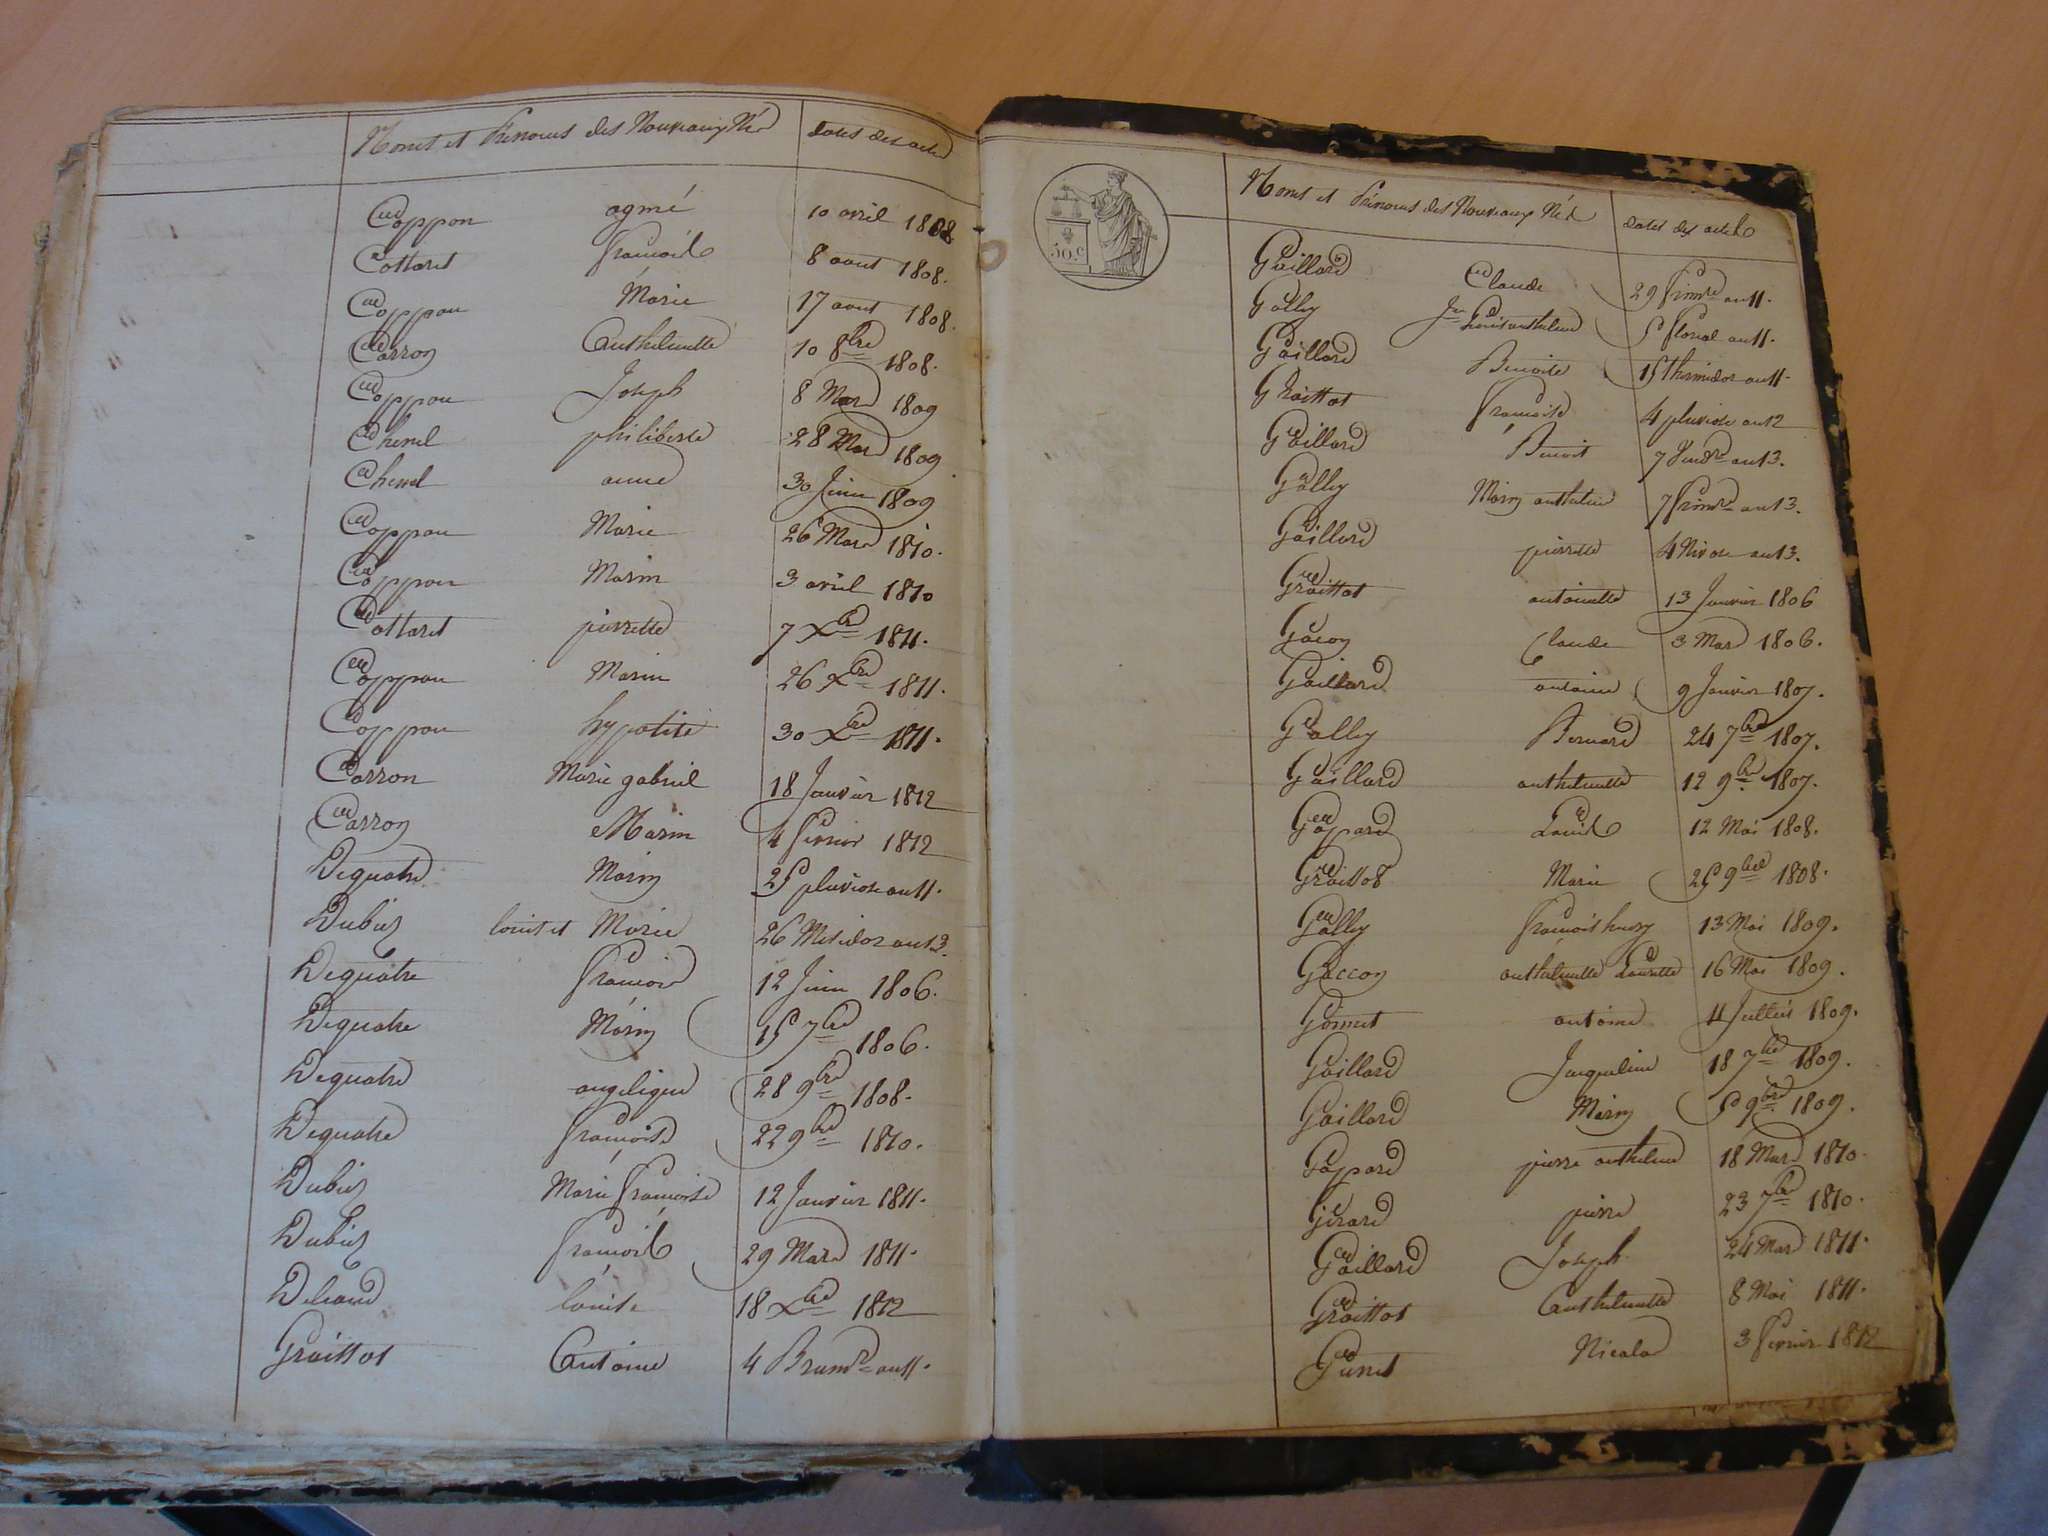 Noms et Prénoms des Nouveaux Nés dates des actes
Coppon agmé 10 avril 1808
Cottaret françois 8 aout 1808.
Coppon Marie 17 aout 1808.
Carron Anthelmette 10 8bre 1808.
Coppon Joseph 8 Mars 1809
Chenel philiberte 28 Mars 1809
Chenel anne 30 Juin 1809
Coppon Marie 26 Mars 1810.
Coppon Marin 3 avril 1810
Cottaret pierrette 7 Xbre 1811.
Coppon Marin 26 Xbre 1811.
Coppon hypolite 30 Xbre 1811.
Carron Marie gabriel 18 Janvier 1812
Carron Marin 4 fevrier 1812
Dequatre Marin 25 pluviose an 11.
Dubiez louis et Marie 26 Mesidor an 13.
Dequatre françois 12 Juin 1806.
Dequatre Marin 15 7bre 1806.
Dequatre angelique 28 9bre 1808.
Dequatre françoise 22 9bre 1810.
Dubiez Marie françoise 12 Janvier 1811.
Dubiez françois 29 Mars 1811.
louise 18 Xbre 1812
Groittot Antoine 4 Brumre an 11.
Noms et Prénoms des Nouveaux Nés dates des actes
50.C
Gaillard Claude 29 frimre an 11.
Golly Jn Louis anthelme 5 floréal an 11.
Gaillard Benoite 15 thermidor an 11.
Groittot françoise 4 pluviose an 12
Gaillard Benoit 7 Vendre an 13.
Golly Marin anthelme 7 frimre an 13.
Gaillard pierrette 4 Nivose an 13.
Groittot antoinette 13 Janvier 1806
Gacon Claude 3 Mars 1806.
Gaillard antoine 9 Janvier 1807.
Golly Bernard 24 7bre 1807.
Gaillard anthelmette 12 9bre 1807.
Gaspard Louis 12 Mai 1808.
Groittot Marie 25 9bre 1808.
Golly françois henry 13 Mai 1809.
Gaccon anthelmette Laurette 16 Mai 1809.
Gonnet antoine 11 Juillet 1809.
Gaillard Jacqueline 18 7bre 1809.
Gaillard Marin 5 9bre 1809.
Gaspard pierre anthelme 18 Mars 1810.
Girard pierre 23 7bre 1810.
Gaillard Joseph 24 Mars 1811.
Groittot Anthelmette 8 Mai 1811.
Nicolas 3 fevrier 1812